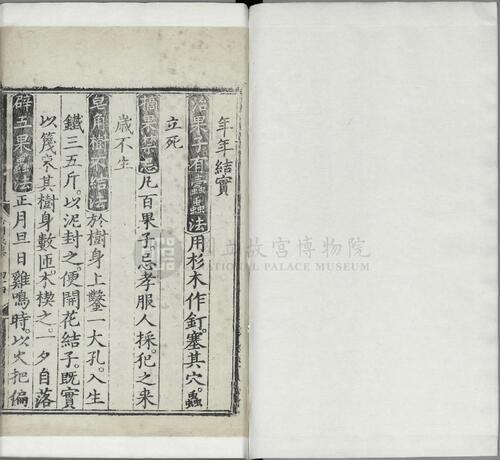 年年結實
治果子有蠹蟲法用杉木作釘塞其穴。蟲
立死
摘果禁忌凡百果子。忌孝服人採。犯之来
歲不生
皂角樹不結法於樹身上鑿一大孔。入生
鐵三五斤。以泥封之。便開花結子。既實
以篾束其樹身數匝。木楔之。一夕自落
辟五果蟲法正月旦日雞鳴時。以火把徧
國立故宮博物院
NATIONAL PALACE MUSEUM